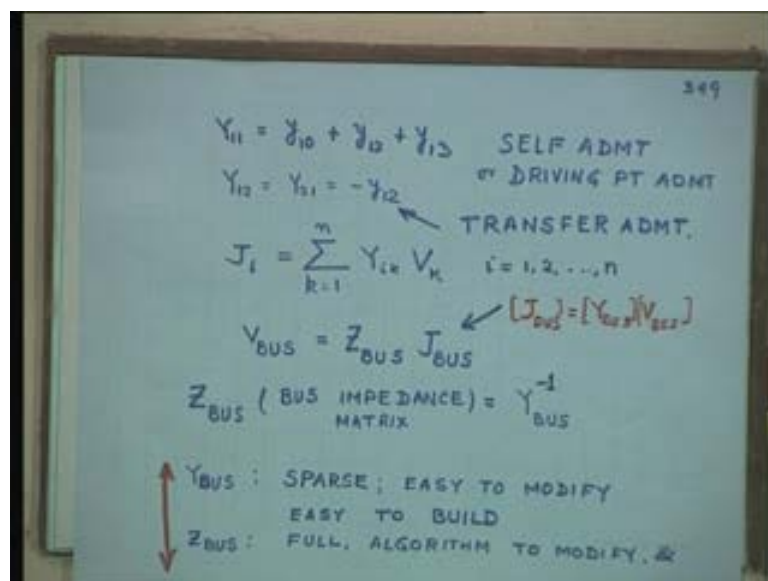 349
Y₁₁ = y₁₀ + y₁₂ + y₁₃ SELF ADMT
or DRIVING PT ADMT
Y₁₂ = Y₂₁ = -y₁₂
TRANSFER ADMT.
Jᵢ = ∑ₖ₌₁ⁿ Yᵢₖ Vₖ i = 1, 2, ..., n
[J_BUS] = [Y_BUS][V_BUS]
V_BUS = Z_BUS J_BUS
Z_BUS ( BUS IMPEDANCE MATRIX ) = Y_BUS⁻¹
Y_BUS : SPARSE; EASY TO MODIFY
EASY TO BUILD
Z_BUS : FULL, ALGORITHM TO MODIFY, &